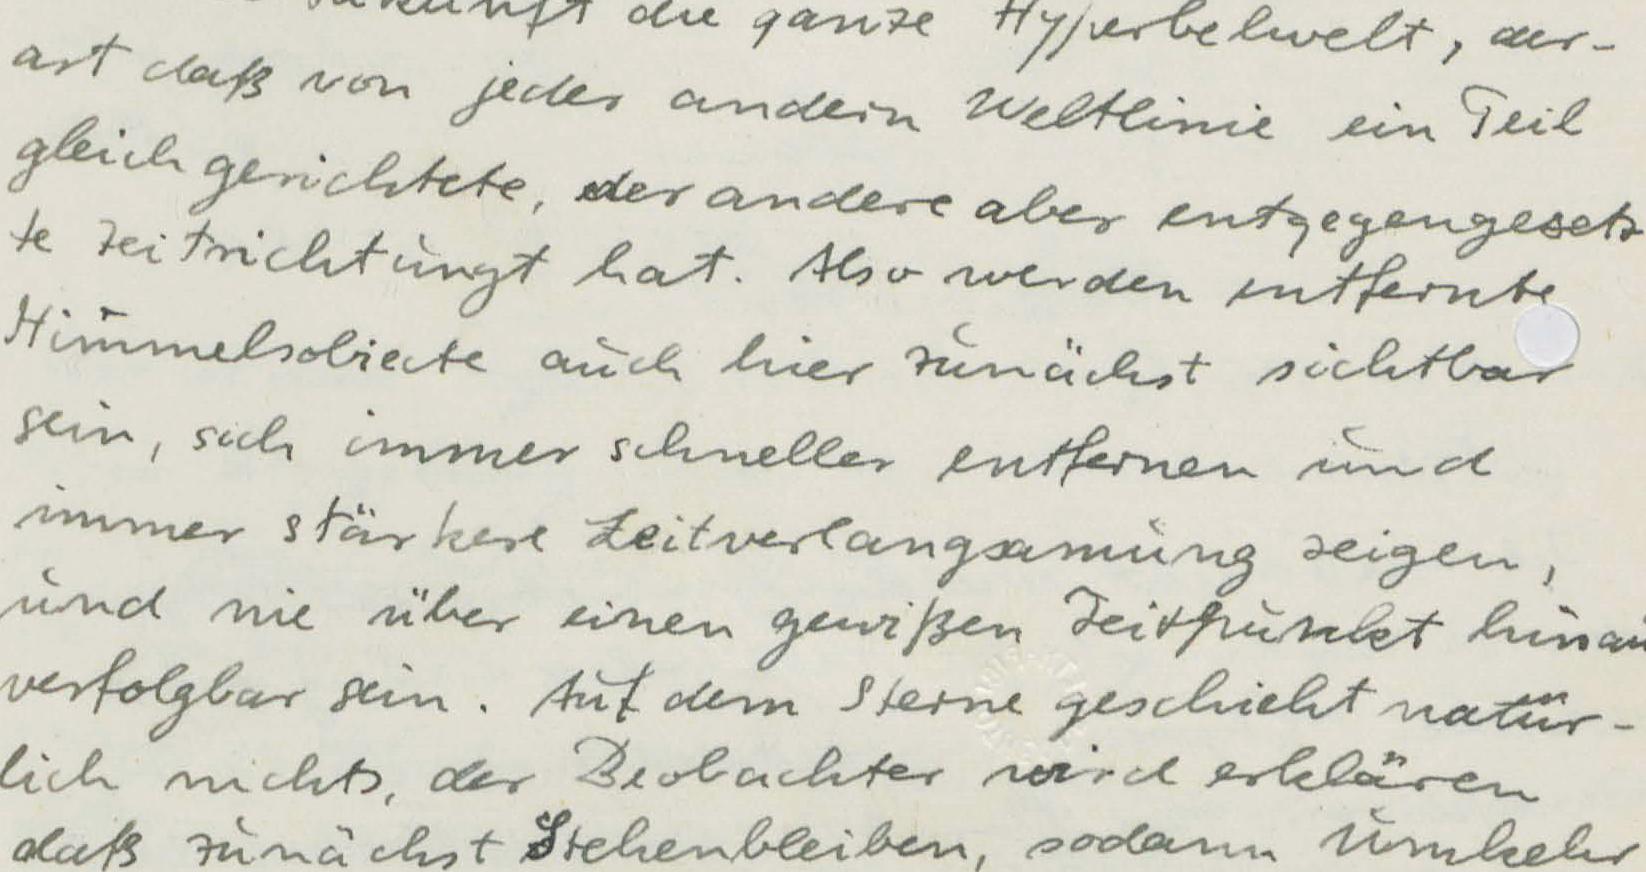 Zukunft die ganze Hyperbelwelt, der-
art daß von jeder andern Weltlinie ein Teil
gleich gerichtete, der andere aber entgegengesetz
te Zeitrichtungt hat. Also werden entfernte
Himmelsobiecte auch hier zunächst sichtbar
sein, sich immer schneller entfernen und
immer stärkere Zeitverlangsamung zeigen,
und nie über einen gewißen Zeitpunkt hinau
verfolgbar sein. Auf dem Sterne geschieht natür-
lich nichts, der Beobachter wird erklären
daß zunächst Stehenbleiben, sodann Umkehr